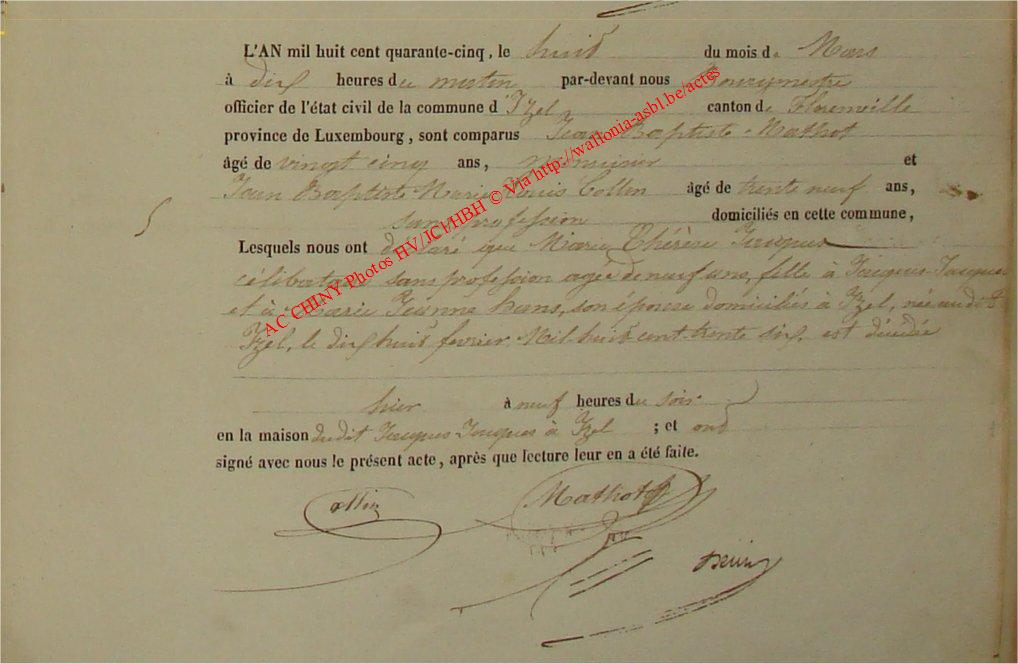 L'AN mil huit cent quarante-cinq, le huit du mois de Mars
à dix heures du matin par-devant nous Bourgmestre
officier de l'état civil de la commune d'Izel canton de Florenville
province de Luxembourg, sont comparus Jean Baptiste Mathot
âgé de vingt cinq ans, menuisier et
Jean Baptiste Marie Louis Collin âgé de trente neuf ans,
5 sans profession domiciliés en cette commune,
Lesquels nous ont déclaré que Marie Thérèse Jacques
célibataire sans profession agée de neuf ans, fille à Jacques Jacques
et à Marie Jeanne Hans, son épouse domiciliés à Izel, née audit
Izel, le dix huit fevrier Mil huit cent trente six est décédée
hier à neuf heures du soir
en la maison dudit Jacques Jacques à Izel ; et ont
signé avec nous le présent acte, après que lecture leur en a été faite.
Collin Mathot
AC CHINY Photos HV/JCl/HBH © Via http://wallonia-asbl.be/actes